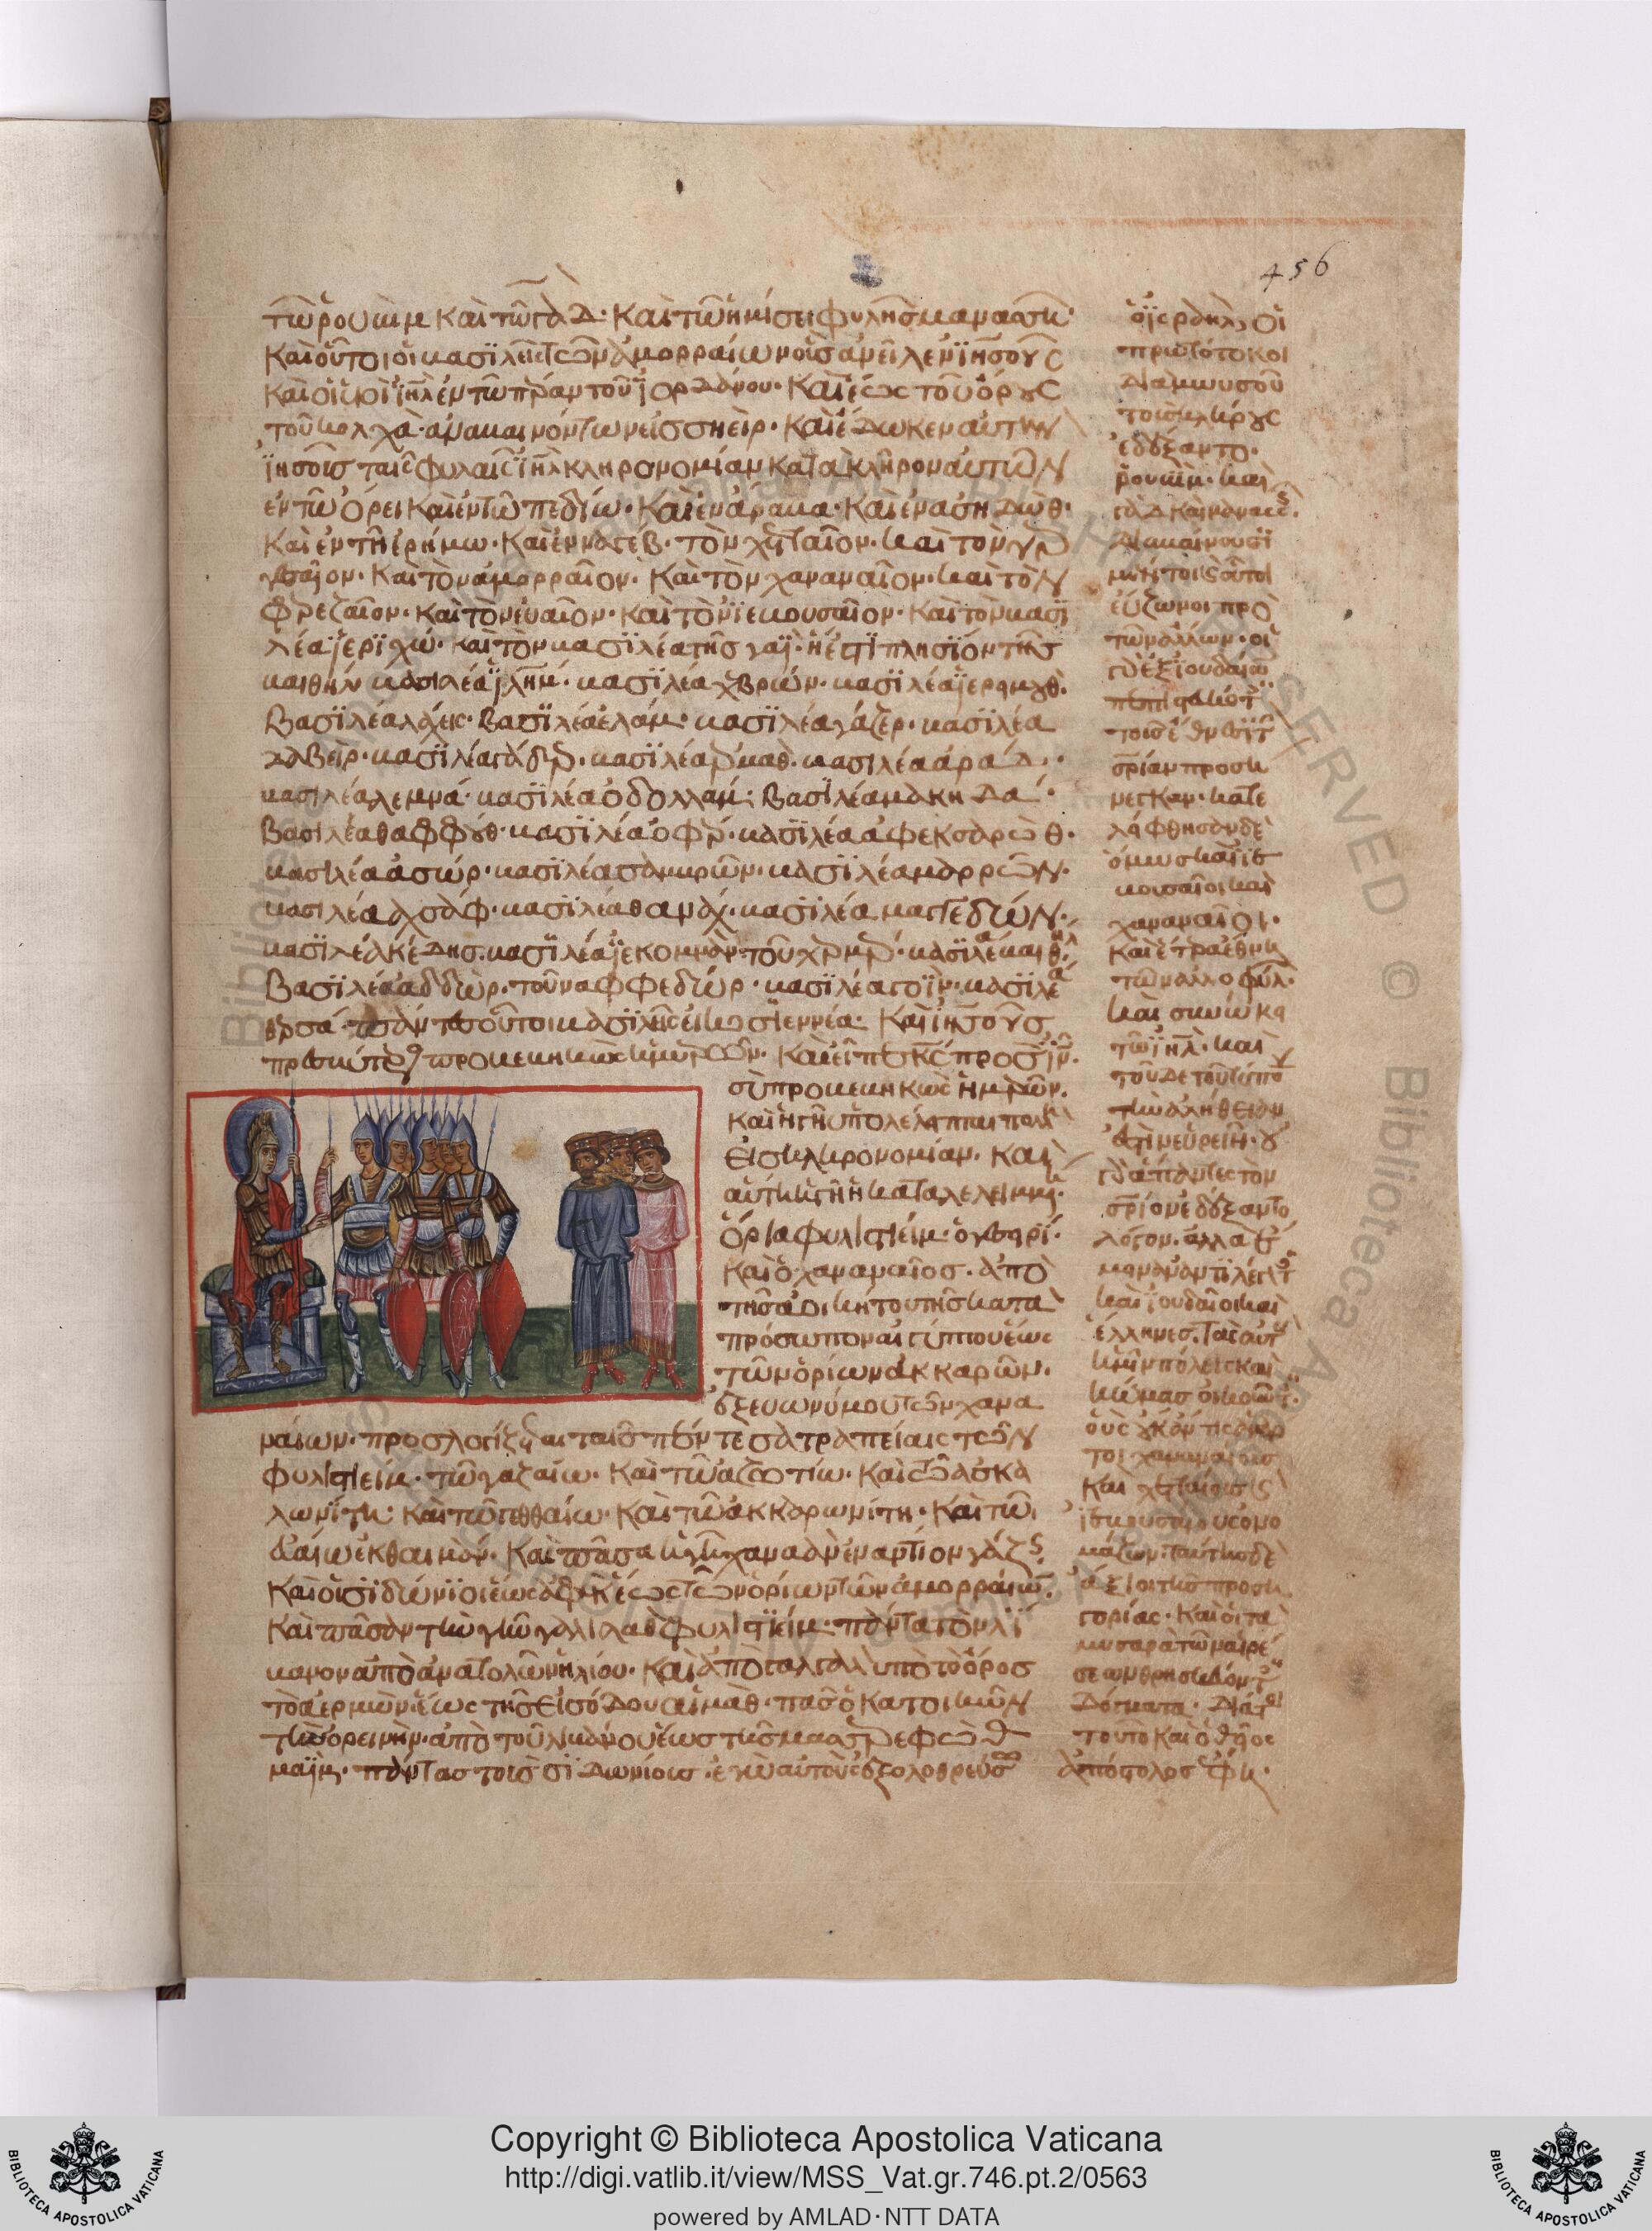 456
τῶ ρουβὴμ καὶ τῶ γὰδ· καὶ τῶ ἡμίσει φυλῆς μανασσῆ·
καὶ οὗτοι οἱ βασϊλεῖς τῶν ἀμορραίων οὓς ἀνεῖλεν ϊησοῦς
καὶ οἱ υἱοὶ ϊηλ ἐν τῶ πέραν τοῦ ϊορδάνου·
τοῦ χελχὰ· ἀναβαινόντων εἰς σηεὶρ· καὶ ἔδωκεν αὐτὴν
ϊησοῦς ταῖς φυλαῖς ϊηλ κληρονομίαν κατὰ κλῆρον αὐτῶν
ἐν τῶ ὄρει καὶ ἐν τῶ πεδίω· καὶ ἐν ἄραβα· καὶ ἐν ἀσηδώθ·
καὶ ἐν τῆ ἐρήμω· καὶ ἐν ναγέβ· τὸν χετταῖον· καὶ τὸν γερ
γεσαῖον· καὶ τὸν ἀμορραῖον· καὶ τὸν χαναναῖον· καὶ τὸν
φερεζαῖον· καὶ τὸν εὐαῖον· καὶ τὸν ϊεβουσαῖον· καὶ τὸν βασϊ
λέα ϊερϊχώ· καὶ τὸν βασϊλέα τῆς γαϊ· ἥ ἐστϊ πλησϊον τῆς
βαιθήλ βασιλέα ϊλημ· βασϊλέα χεβρών· βασϊλέα ϊεριμουθ·
βασϊλέα λάχεις· βασϊλέα ἐλάμ· βασϊλέα γάζερ· βασϊλέα
δαβεὶρ· βασϊλέα γάδερ· βασϊλέα ἑρμαθ· βασιλέα ἀράδ·
βασιλέα λεμνά· βασϊλέα ὀδολλάμ· βασϊλέα μακηδά·
βασιλέα θαφφούθ· βασϊλέα ὀφέρ· βασϊλέα ἀφὲκ σαρώθ·
βασιλέα ἀσώρ· βασϊλέα σαμβρῶν· βασϊλέα μαρρῶν·
βασιλέα ἀχσάφ· βασϊλέα θανάχ· βασϊλέα μαγεδών·
βασϊλέα κέδης· βασϊλέα ϊεκομνὰν τοῦ χερμέλ·
βασϊλέα ἀδδὼρ· τοῦ ναφφεδώρ· βασϊλέα γοϊμ· βασϊλέα
πάντες οὗτοι βασϊλεῖς εἴκοσϊ ἐννέα· καὶ ϊησοῦς
πρεσβύτερος προβεβηκὼς ἡμερῶν· καὶ εἶπε κς πρὸς ϊν·
σὺ προβέβηκας ἡμερῶν·
καὶ ἡ γῆ ὑπολέλειπται πολλὴ
εἰς κληρονομίαν· καὶ
αὕτη ἡ γῆ ἡ καταλελειμμένη·
ὅρια φυλιστιεὶμ·
καὶ ὁ χαναναῖος· ἀπὸ
τῆς ἀοικήτου τῆς κατὰ
πρόσωπον αἰγύπτου ἕως
τῶν ὁρίων ἀκκαρῶν·
ἐξ εὐωνύμου τῶν χανα
ναίων· προσλογίζεται ταῖς πέντε σατραπείαις τῶν
φυλιστιείμ· τῶ γαζαίω· καὶ τῶ ἀζωτίω· καὶ τῶ ἀσκα
λωνίτη· καὶ τῶ γεθθαίω· καὶ τῶ ἀκκαρωνίτη· καὶ τῶ
εὐαίω ἐκ θαιμὰν· καὶ πᾶσα γῆ χαναὰν ἐναντίον γάζης
καὶ οἱ σϊδώνϊοι ἕως ἀφὲκ ἕως τῶν ὁρίων τῶν ἀμορραίων·
καὶ πᾶσαν τὴν γῆν γαλιλὰθ φυλιστϊείμ· πάντα τὸν λϊ
βανον ἀπὸ ἀνατολῶν ἡλίου· καὶ ἀπὸ γαλγὰλ ὑπὸ τὸ ὄρος
τὸ ἀερμών· ἕως τῆς εἰσόδου αἰμάθ· πᾶς ὁ κατοικῶν
τὴν ὀρεινὴν· ἀπὸ τοῦ λιβάνου ἕως τῆς μαασερεφὼθ
μαϊμ· πάντας τοὺς σϊδωνίους· ἐγὼ αὐτοὺς ἐξολοθρεύσω
οἱ
πρωτότοκοι
διὰ μωυσοῦ
τοὺς κλήρους
ἐδέξαντο·
ρουβὴμ· καὶ
γὰδ καὶ μανασσ.
εὔζωνοι πρὸ
τῶν ἄλλων· οἱ
γὰρ ἐξ ϊουδαίων
πεπιστευκότ
τοῖς ἔθνεσϊ τ
σρίαν προσή
νεγκαν· κατε
λείφθησαν δὲ
ὅμως καὶ ϊε
βουσαῖοι καὶ
χαναναῖοι·
καὶ ἕτερα ἔθνη
τῶν ἀλλοφύλ·
τῶ ϊηλ· καὶ
τοῦδε τοῦ τύπου
τὴν ἀλήθειαν
ἔστιν εὑρεῖν· οὐ
γὰρ ἅπαντες τὸν
σριον ἐδέξαντο
λόγον· ἀλλ
καὶ ϊουδαῖοι καὶ
ἕλληνες·
ἡμῖν πόλεις καὶ
κώμας οἰκοῦντ·
οὓς οὐκ ἄν τις ἁμάρ
τοι χαναναίους
καὶ χετταίους
ϊεβουσαίους ὀνο
μάζων· ταύτης δὲ
ἄξιοι τῆς προση
γορίας· καὶ οἱ τὰ
μυσαρὰ τῶν αἱρέ
σεων
δόγματα· διὰ
τοῦτο καὶ ὁ θεῖος
ἀπόστολος ἔφη·
Copyright © Biblioteca Apostolica Vaticana
http://digi.vatlib.it/view/MSS_Vat.gr.746.pt.2/0563
powered by AMLAD·NTT DATA
BIBLIOTECA APOSTOLICA VATICANA
BIBLIOTECA APOSTOLICA VATICANA